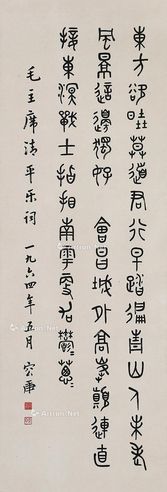 東方欲曉莫道君行早踏徧青山人未老
風景這邊獨好 會昌城外高峯顛連直
接東溟戰士指看南粵更加鬱〻蔥〻
毛主席清平乐词 一九六四年五月 容庚